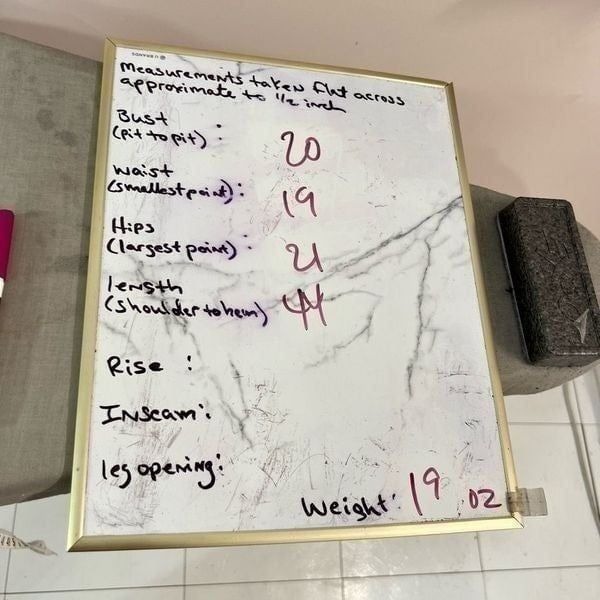 U BRANDS
Measurements taken flat across
approximate to 1/2 inch
Bust
(pit to pit) : 20
waist
(smallest point) : 19
Hips
(largest point) : 21
length
(shoulder to hem) 44
Rise :
Inseam :
leg opening :
Weight : 19 oz